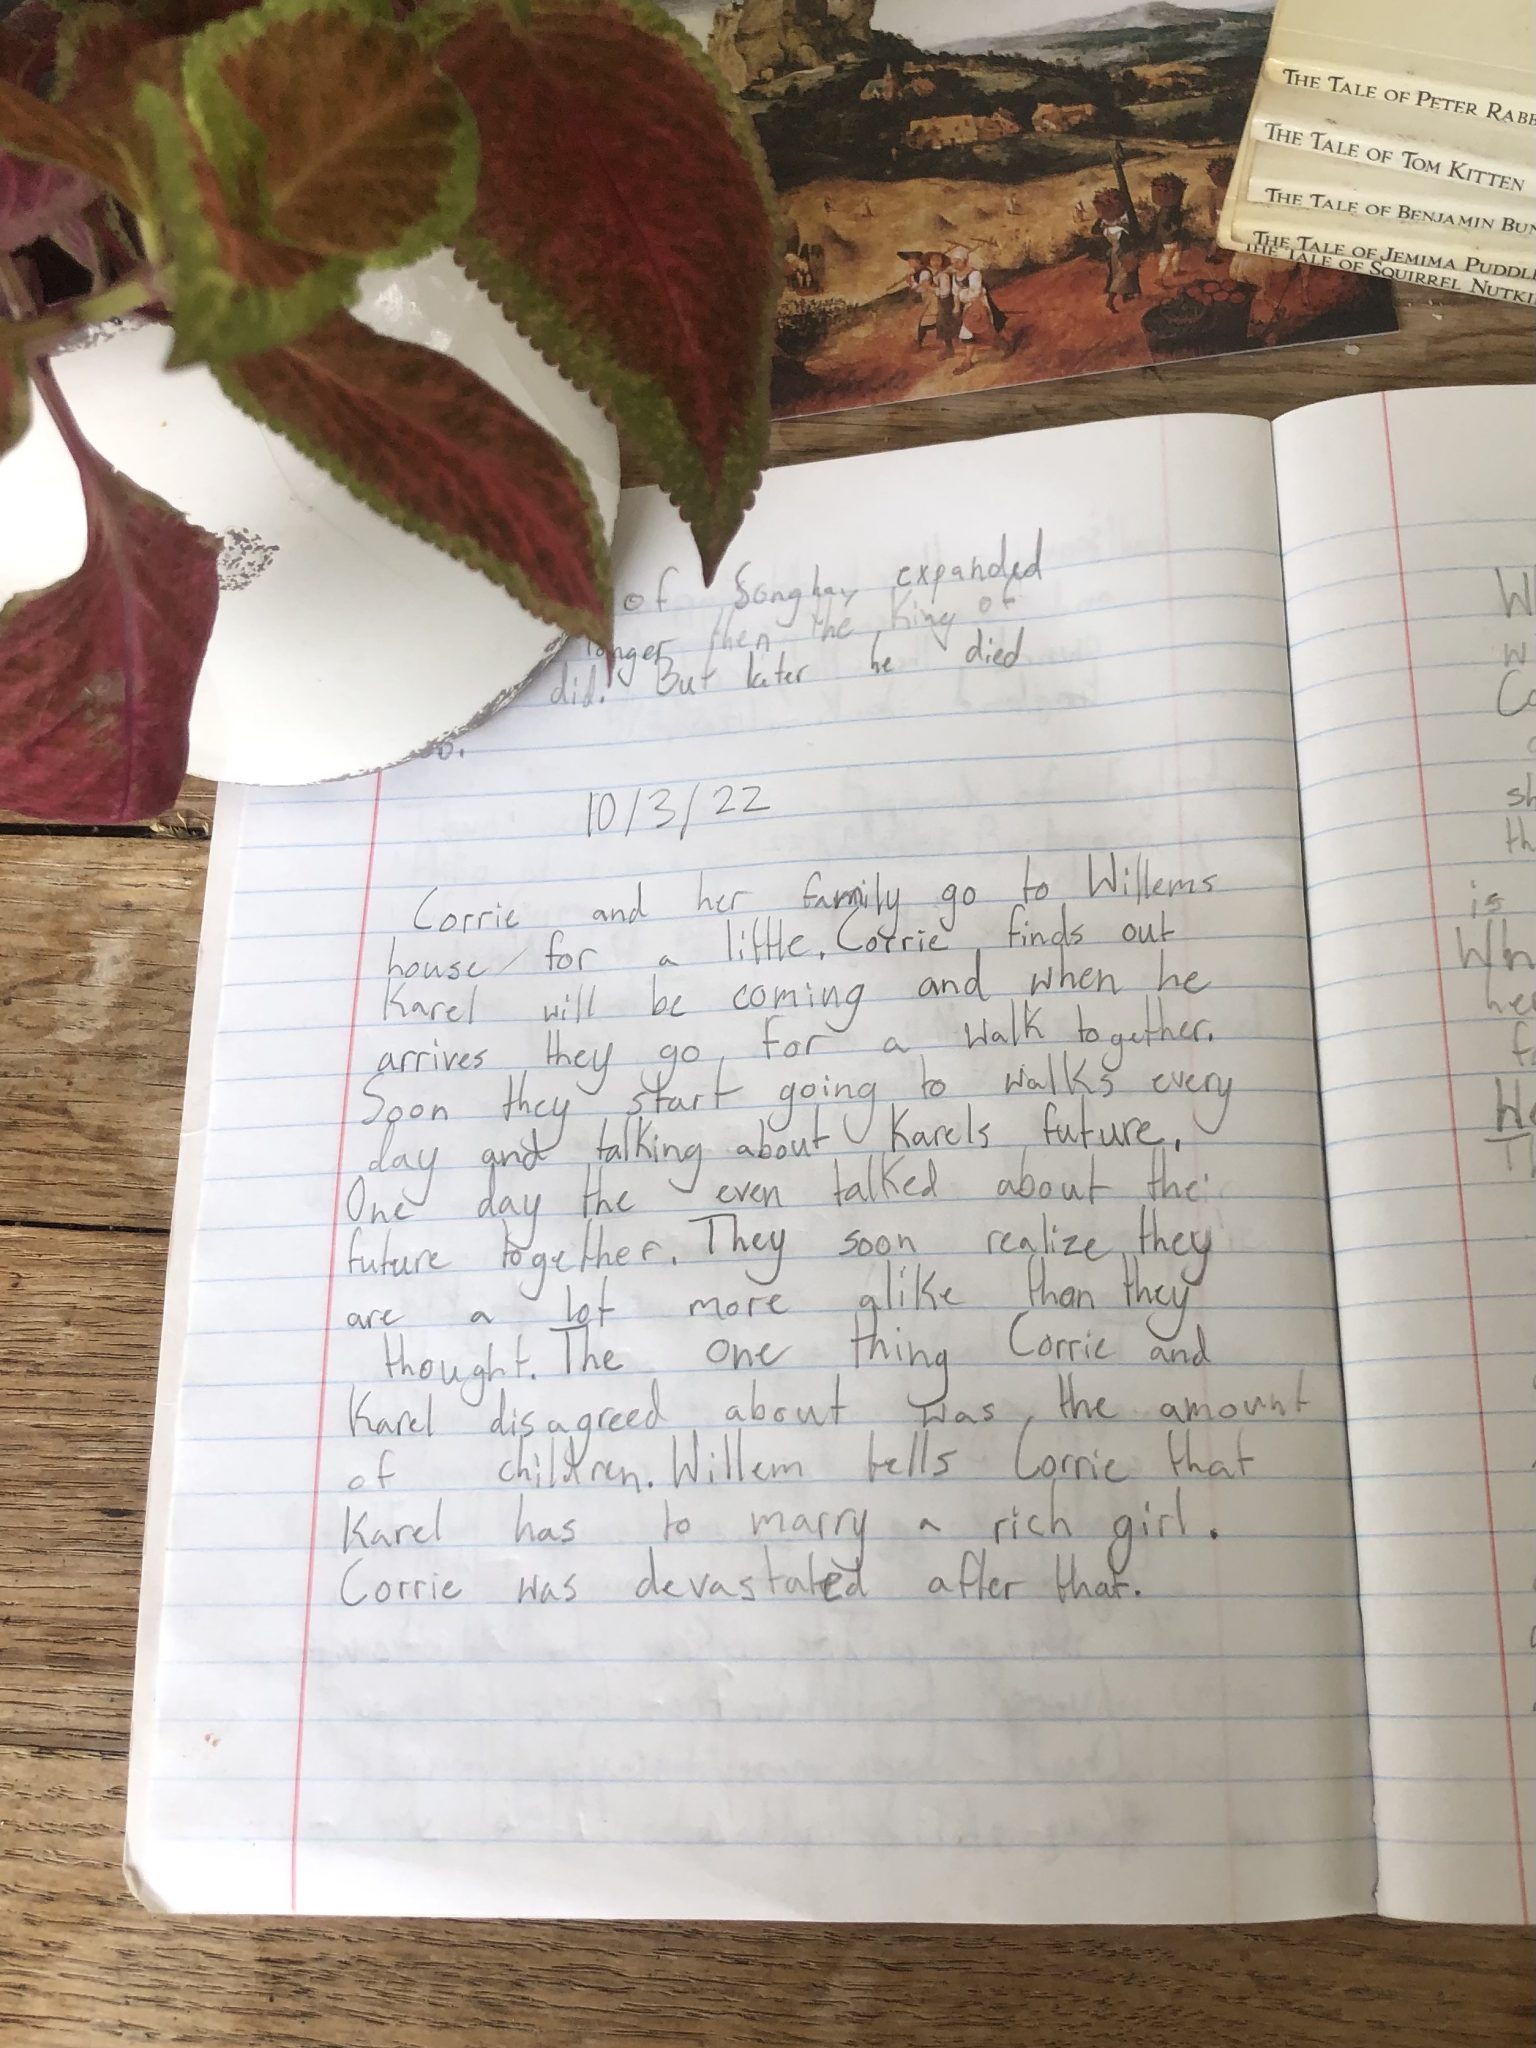 THE TALE OF PETER
THE TALE OF TOM KITTEN
THE TALE OF BENJAMIN
THE TALE OF JEMIMA
THE TALE OF SQUIRREL
of Songhay expanded
longer then the King of
did. But later he died
10/3/22
Corrie and her family go to Willems
house for a little. Corrie finds out
Karel will be coming and when he
arrives they go for a walk together.
Soon they start going to walks every
day and talking about Karels future.
One day the even talked about the
future together. They soon realize they
are a lot more alike than they
thought. The one thing Corrie and
Karel disagreed about was the amount
of children. Willem tells Corrie that
Karel has to marry a rich girl.
Corrie was devastated after that.
is